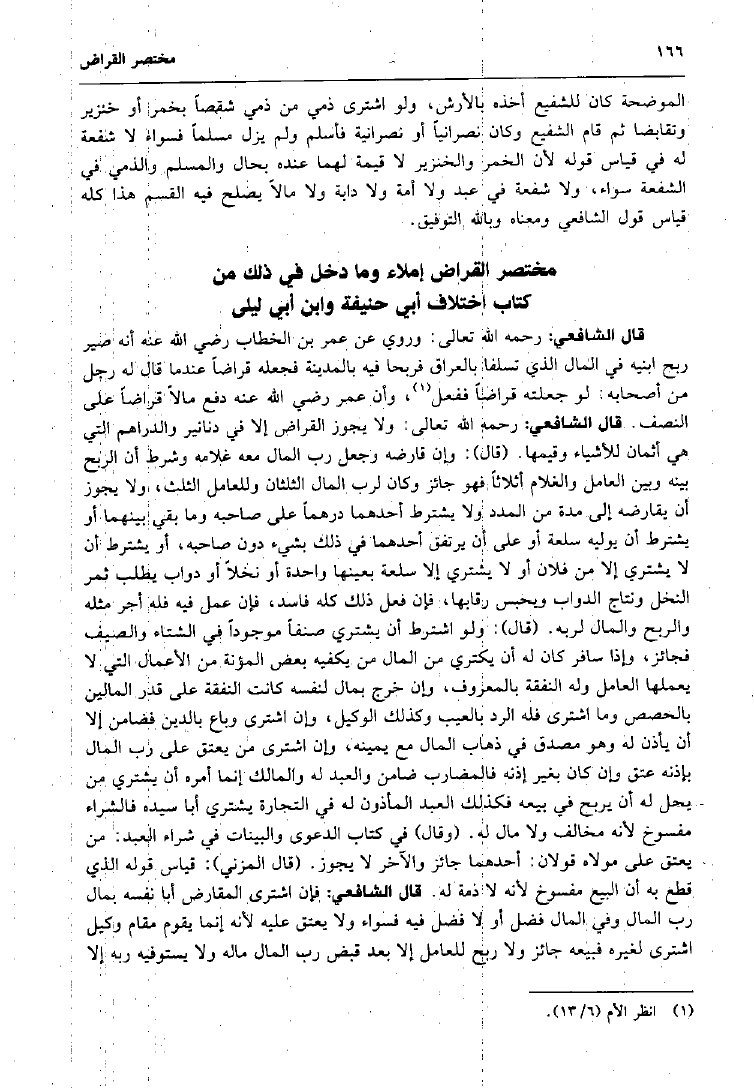 ١٦٦
مختصر القراض
الموضحة كان للشفيع أخذه بالأرش، ولو اشترى ذمي من ذمي شقصاً بخمر أو خنزير
وتقابضا ثم قام الشفيع وكان نصرانياً أو نصرانية فأسلم ولم يزل مسلماً فسواء لا شفعة
له في قياس قوله لأن الخمر والخنزير لا قيمة لهما عنده بحال والمسلم والذمي في
الشفعة سواء، ولا شفعة في عبد ولا أمة ولا دابة ولا مالاً يصلح فيه القسم هذا كله
قياس قول الشافعي ومعناه وبالله التوفيق.
مختصر القراض إملاء وما دخل في ذلك من
كتاب اختلاف أبي حنيفة وابن أبي ليلى
قال الشافعي: رحمه الله تعالى: وروي عن عمر بن الخطاب رضي الله عنه أنه صير
ربح ابنيه في المال الذي تسلفا بالعراق فربحا فيه بالمدينة فجعله قراضاً عندما قال له رجل
من أصحابه: لو جعلته قراضاً ففعل(١)، وأن عمر رضي الله عنه دفع مالاً قراضاً على
النصف. قال الشافعي: رحمه الله تعالى: ولا يجوز القراض إلا في دنانير والدراهم التي
هي أثمان للأشياء وقيمها. (قال): وإن قارضه وجعل رب المال معه غلامه وشرط أن الربح
بينه وبين العامل والغلام أثلاثاً فهو جائز وكان لرب المال الثلثان وللعامل الثلث، ولا يجوز
أن يقارضه إلى مدة من المدد ولا يشترط أحدهما درهماً على صاحبه وما بقي بينهما أو
يشترط أن يوليه سلعة أو على أن يرتفق أحدهما في ذلك بشيء دون صاحبه، أو يشترط أن
لا يشتري إلا من فلان أو لا يشتري إلا سلعة بعينها واحدة أو نخلاً أو دواب يطلب ثمر
النخل ونتاج الدواب ويحبس رقابها، فإن فعل ذلك كله فاسد، فإن عمل فيه فله أجر مثله
والربح والمال لربه. (قال): ولو اشترط أن يشتري صنفاً موجوداً في الشتاء والصيف
فجائز، وإذا سافر كان له أن يكتري من المال من يكفيه بعض المؤنة من الأعمال التي لا
يعملها العامل وله النفقة بالمعروف، وإن خرج بمال لنفسه كانت النفقة على قدر المالين
بالحصص وما اشترى فله الرد بالعيب وكذلك الوكيل، وإن اشترى وباع بالدين فضامن إلا
أن يأذن له وهو مصدق في ذهاب المال مع يمينه، وإن اشترى من يعتق على رب المال
بإذنه عتق وإن كان بغير إذنه فالمضارب ضامن والعبد له والمالك إنما أمره أن يشتري من
يحل له أن يربح في بيعه فكذلك العبد المأذون له في التجارة يشتري أبا سيده فالشراء
مفسوخ لأنه مخالف ولا مال له. (وقال) في كتاب الدعوى والبينات في شراء العبد: من
يعتق على مولاه قولان: أحدهما جائز والآخر لا يجوز. (قال المزني): قياس قوله الذي
قطع به أن البيع مفسوخ لأنه لا ذمة له. قال الشافعي: فإن اشترى المقارض أبا نفسه بمال
رب المال وفي المال فضل أو لا فضل فيه فسواء ولا يعتق عليه لأنه إنما يقوم مقام وكيل
اشترى لغيره فبيعه جائز ولا ربح للعامل إلا بعد قبض رب المال ماله ولا يستوفيه ربه إلا
(١) انظر الأم (١٣/٦).